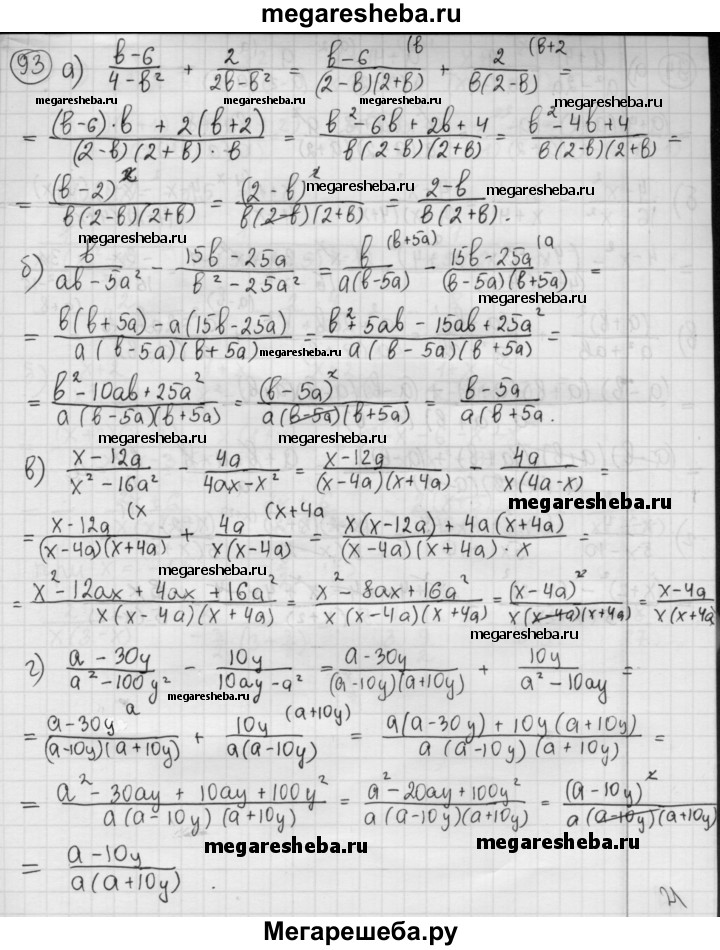 megaresheba.ru
93 а) (в-6)/(4-в²) + 2/(2в-в²) = (в-6)/((2-в)(2+в)) (в + 2/(в(2-в)) (в+2 =
megaresheba.ru megaresheba.ru megaresheba.ru megaresheba.ru
= ((в-6)·в + 2(в+2))/((2-в)(2+в)·в) = (в²-6в+2в+4)/(в(2-в)(2+в)) = (в²-4в+4)/(в(2-в)(2+в)) =
= (в-2)²/(в(2-в)(2+в)) = (2-в)²/(в(2-в)(2+в)) = (2-в)/(в(2+в)).
megaresheba.ru
megaresheba.ru
б) в/(ав-5а²) - (15в-25а)/(в²-25а²) = в/(а(в-5а)) (в+5а) - (15в-25а)/((в-5а)(в+5а)) (а =
megaresheba.ru
= (в(в+5а)-а(15в-25а))/(а(в-5а)(в+5а)) = (в²+5ав-15ав+25а²)/(а(в-5а)(в+5а)) =
megaresheba.ru
= (в²-10ав+25а²)/(а(в-5а)(в+5а)) = (в-5а)²/(а(в-5а)(в+5а)) = (в-5а)/(а(в+5а.
megaresheba.ru megaresheba.ru
в) (x-12а)/(x²-16а²) - 4а/(4аx-x²) = (x-12а)/((x-4а)(x+4а)) - 4а/(x(4а-x)) =
megaresheba.ru megaresheba.ru
= (x-12а)/((x-4а)(x+4а)) (x + 4а/(x(x-4а)) (x+4а = (x(x-12а)+4а(x+4а))/((x-4а)(x+4а)·x) =
megaresheba.ru
= (x²-12аx+4аx+16а²)/(x(x-4а)(x+4а)) = (x²-8аx+16а²)/(x(x-4а)(x+4а)) = (x-4а)²/(x(x-4а)(x+4а)) = (x-4а)/(x(x+4а)
megaresheba.ru
г) (а-30y)/(а²-100y²) - 10y/(10аy-а²) = (а-30y)/((а-10y)(а+10y)) + 10y/(а²-10аy) =
megaresheba.ru
= (а-30y)/((а-10y)(а+10y)) а + 10y/(а(а-10y)) (а+10y) = (а(а-30y)+10y(а+10y))/(а(а-10y)(а+10y)) =
= (а²-30аy+10аy+100y²)/(а(а-10y)(а+10y)) = (а²-20аy+100y²)/(а(а-10y)(а+10y)) = (а-10y)²/(а(а-10y)(а+10y)
megaresheba.ru megaresheba.ru
= (а-10y)/(а(а+10y)).
21
Мегарешеба.ру